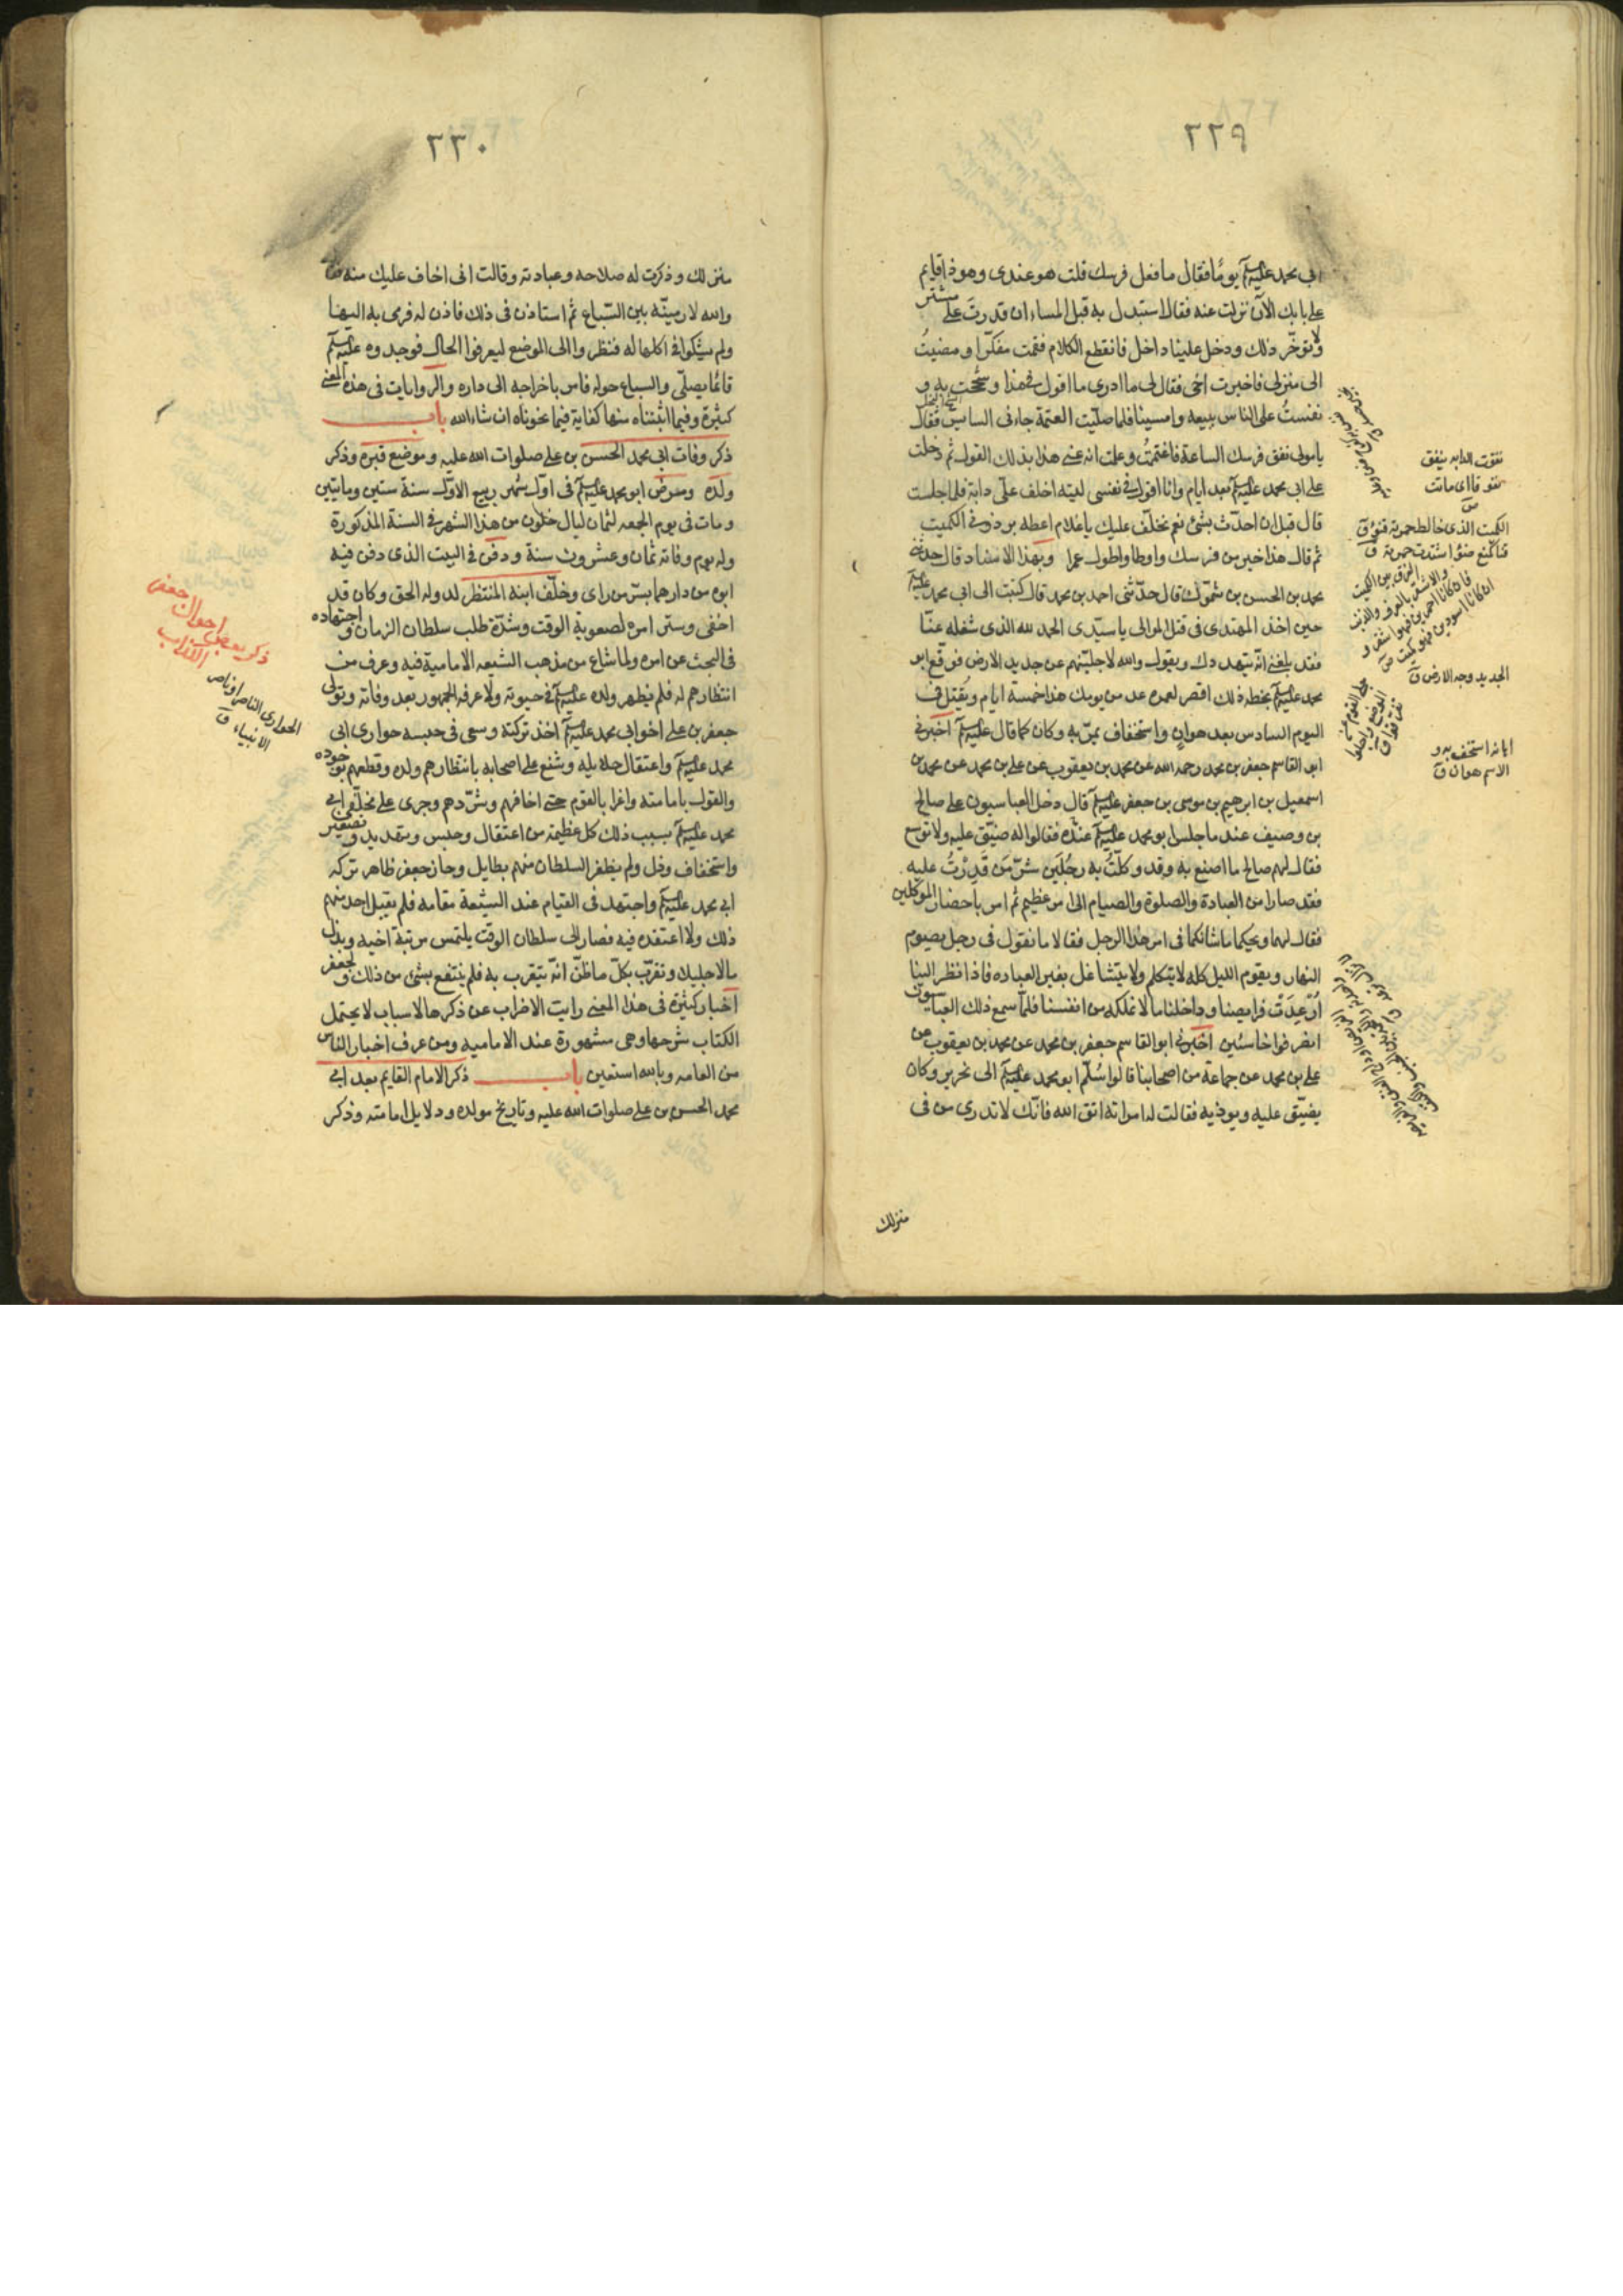 ٢٢٩
ابي محمد عليه السلم يوما فقال ما فعل فرسك قلت هو عندى وهو ذا قايم
على بابك الآن نزلت عنه فقال استبدل به قبل المساء ان قدرت على مشتر
ولا تؤخر ذلك ودخل علينا داخل فانقطع الكلام فقمت مفكرا ومضيت
الى منزلى فاخبرت اخى فقال لى ما ادرى ما اقول فى هذا وشححت به و
نفست على الناس ببيعه وامسينا فلما صليت العتمة جاءنى السايس فقال
يا مولى نفق فرسك الساعة فاغتممت وعلمت انه عنى هذا بذلك القول ثم دخلت
على ابى محمد عليه السلم بعد ايام وانا اقول فى نفسى ليته اخلف على دابة فلما جلست
قال قبل ان احدث بشئ نعم نخلف عليك يا غلام اعطه برذونى الكميت
ثم قال هذا خير من فرسك واوطا واطول عمرا وبهذا الاسناد قال حدثنى
محمد بن الحسن بن شمّون قال حدّثنى احمد بن محمد قال كتبت الى ابى محمد عليه السلم
حين اخذ المهتدى فى قتل الموالى يا سيّدى الحمد لله الذى شغله عنّا
فقد بلغنى انّه يتهددك ويقول والله لاجلينهم عن جديد الارض فوقّع ابو
محمد عليه السلم بخطه ذلك اقصر لعمره عد من يومك هذا خمسة ايام ويُقتل فى
اليوم السادس بعد هوان واستخفاف يمرّ به وكان كما قال عليه السلم اخبرنى
ابو القاسم جعفر بن محمد رحمه الله عن محمد بن يعقوب عن على بن محمد عن محمد بن
اسمعيل بن ابرهيم بن موسى بن جعفر عليه السلم قال دخل العباسيون على صالح
بن وصيف عند ما جلس ابو محمد عليه السلم عنده فقالوا له ضيّق عليه ولا توسع
فقال لهم صالح ما اصنع به وقد وكلت به رجلين شرّ من قدرت عليه
فقد صارا من العبادة والصلوة والصيام الى امر عظيم ثم امر باحضار الموكلين
فقال لهما ويحكما ما شانكما فى امر هذا الرجل فقالا ما نقول فى رجل يصوم
النهار ويقوم الليل كله لا يتكلم ولا يتشاغل بغير العباده فاذا نظر الينا
ارعدت فرايصنا وداخلنا ما لا نملكه من انفسنا فلما سمع ذلك العباسيون
انصرفوا خاسئين اخبرنى ابو القاسم جعفر بن محمد عن محمد بن يعقوب عن
على بن محمد عن جماعة من اصحابنا قالوا سُلّم ابو محمد عليه السلم الى نحرير وكان
يضيّق عليه ويوذيه فقالت له امراته اتق الله فانّك لا تدرى من فى
منزلك
نفقت الدابه ينفق
نفوقا اى ماتت
الكميت الذى خالط حمرته قنوء ق
قنا كمنع قنوءا اشتدت حمرته ق
الفرق بين الكميت
والاشقر بالعرف والذنب
فان كانا احمرين فهو اشقر و
ان كانا اسودين فهو كميت ص
الجديد وجه الارض ق
اهانه استخف به و
الاسم هوان ق
٢٣٠
منزلك وذكرت له صلاحه وعبادته وقالت انى اخاف عليك منه فقال
والله لارمينّه بين السّباع ثم استاذن فى ذلك فاذن له فرمى به اليها
ولم يشكوا فى اكلها له فنظروا الى الموضع ليعرفوا الحال فوجدوه عليه السلم
قائما يصلّى والسباع حوله فامر باخراجه الى داره والروايات فى هذه المعنى
كثيرة وفيما اثبتناه منها كفاية فيما نحوناه ان شاء الله باب
ذكر وفات ابى محمد الحسن بن على صلوات الله عليه وموضع قبره وذكر
ولده ومرض ابو محمد عليه السلم فى اول شهر ربيع الاول سنة ستين وماتين
ومات فى يوم الجمعه لثمان ليال خلون من هذا الشهر فى السنة المذكورة
وله يوم وفاته ثمان وعشرون سنة ودفن فى البيت الذى دفن فيه
ابوه من دارهما بسر من راى وخلّف ابنه المنتظر لدولة الحق وكان قد
اخفى وستر امره لصعوبة الوقت وشدّة طلب سلطان الزمان واجتهاده
فى البحث عن امره ولما شاع من مذهب الشيعه الامامية فيه وعرف من
انتظارهم له فلم يظهر ولده عليه السلم فى حيوته ولا عرفه الجمهور بعد وفاته وتولى
جعفر بن على اخو ابى محمد عليه السلم اخذ تركته وسعى فى حبسه جوارى ابى
محمد عليه السلم واعتقال حلايله وشنع على اصحابه بانتظارهم ولده وقطعهم بوجوده
والقول بامامته واغرا بالقوم حتى اخافهم وشرّدهم وجرى على مخلّفى ابى
محمد عليه السلم بسبب ذلك كل عظيمة من اعتقال وحبس وتهديد وتصغير
واستخفاف وذل ولم يظفر السلطان منهم بطايل وحاز جعفر ظاهر تركه
ابى محمد عليه السلم واجتهد فى القيام عند الشيعة مقامه فلم يقبل احد منهم
ذلك ولا اعتقده فيه فصار الى سلطان الوقت يلتمس مرتبة اخيه وبذل
مالا جليلا وتقرّب بكلّ ما ظنّ انه يتقرب به فلم ينتفع بشئ من ذلك ولجعفر
اخبار كثيرة فى هذا المعنى رايت الاضراب عن ذكرها لاسباب لا يحتمل
الكتاب شرحها وهى مشهورة عند الاماميه ومن عرف اخبار الناس
من العامه وبالله استعين باب ذكر الامام القايم بعد ابى
محمد الحسن بن على صلوات الله عليه وتاريخ مولده ودلايل امامته وذكر
ذكر بعض احوال جعفر
الكذاب
الحوارى الناصر او ناصر
الانبياء ق